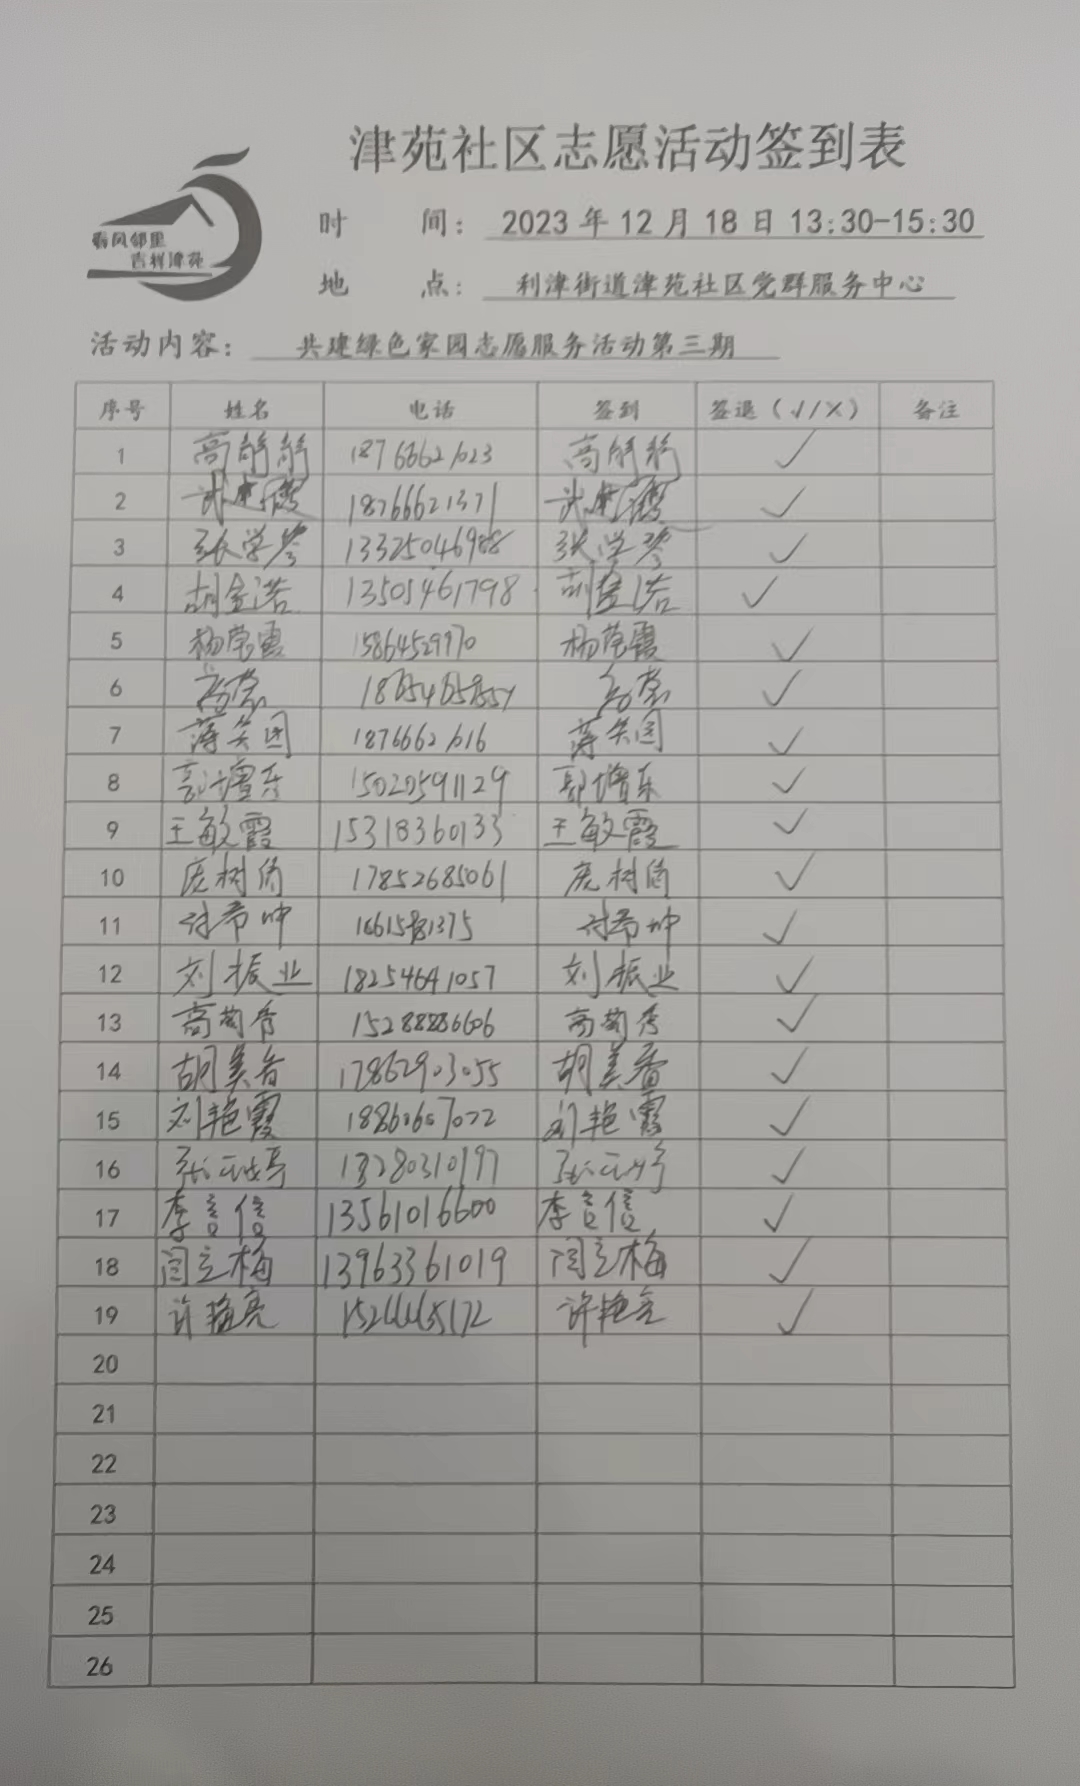 津苑社区志愿活动签到表
春风邻里
吉祥津苑
时 间： 2023年12月18日13:30-15:30
地 点： 利津街道津苑社区党群服务中心
活动内容： 共建绿色家园志愿服务活动第三期
序号 姓名 电话 签到 签退（√/×） 备注
1 高 18766621023 高 √
2 武 18766621371 武 √
3 张学琴 13325046988 张学琴 √
4 胡金浩 13505461798 胡金浩 √
5 杨莹霞 15864529970 杨莹霞 √
6 高荣 高荣 √
7 蒋 18766621016 蒋 √
8 郭增东 15020591129 郭增东 √
9 王敏霞 15318360133 王敏霞 √
10 庞树 17852685061 庞树 √
11 付希坤 付希坤 √
12 刘振业 18254641057 刘振业 √
13 高菊香 高菊秀 √
14 胡美香 17862903055 胡美香 √
15 刘艳霞 18860607022 刘艳霞 √
16 张 13280310197 张 √
17 李言信 13561016600 李言信 √
18 闫立梅 13963361019 闫立梅 √
19 许艳亮 许艳亮 √
20
21
22
23
24
25
26